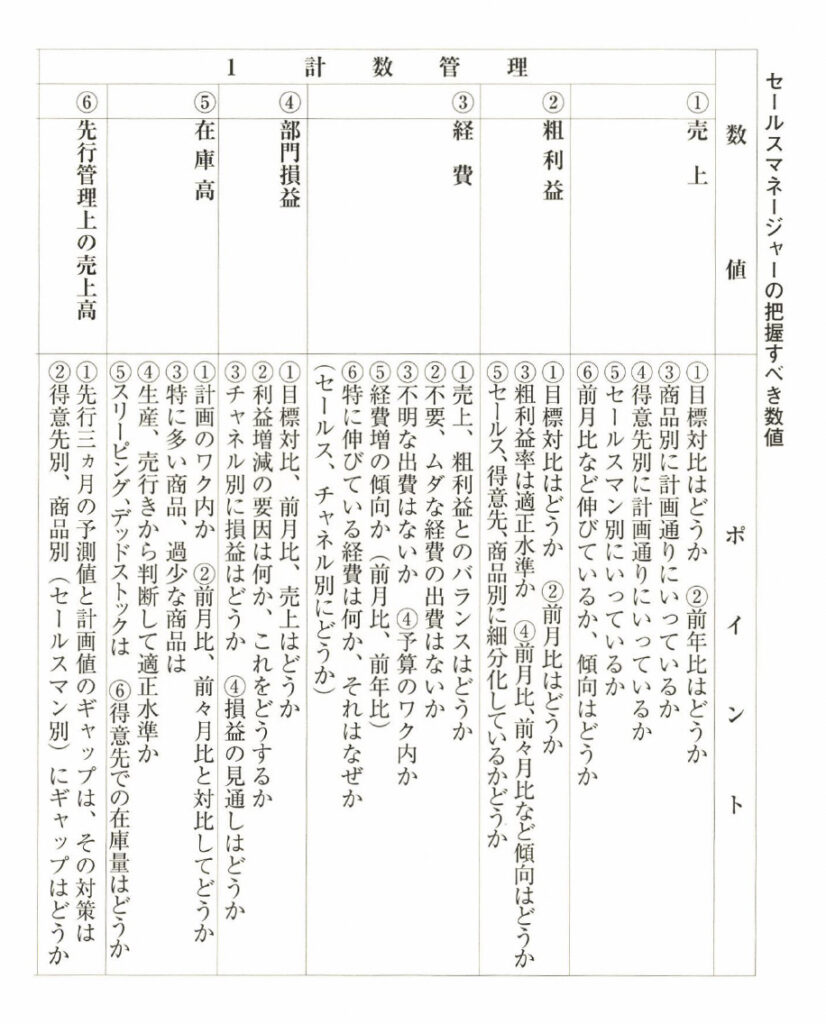 セールスマネージャーの把握すべき数値
数値
ポイント
1 計数管理
①売上
①目標対比はどうか ②前年比はどうか
③商品別に計画通りにいっているか
④得意先別に計画通りにいっているか
⑤セールスマン別にいっているか
⑥前月比など伸びているか、傾向はどうか
②粗利益
①目標対比はどうか ②前月比はどうか
③粗利益率は適正水準か ④前月比、前々月比など傾向はどうか
⑤セールス、得意先、商品別に細分化しているかどうか
③経費
①売上、粗利益とのバランスはどうか
②不要、ムダな経費の出費はないか
③不明な出費はないか ④予算のワク内か
⑤経費増の傾向か（前月比、前年比）
⑥特に伸びている経費は何か、それはなぜか
（セールス、チャネル別にどうか）
④部門損益
①目標対比、前月比、売上はどうか
②利益増減の要因は何か、これをどうするか
③チャネル別に損益はどうか ④損益の見通しはどうか
⑤在庫高
①計画のワク内か ②前月比、前々月比と対比してどうか
③特に多い商品、過少な商品は
④生産、売行きから判断して適正水準か
⑤スリーピング、デッドストックは ⑥得意先での在庫量はどうか
⑥先行管理上の売上高
①先行三ヵ月の予測値と計画値のギャップは、その対策は
②得意先別、商品別（セールスマン別）にギャップはどうか